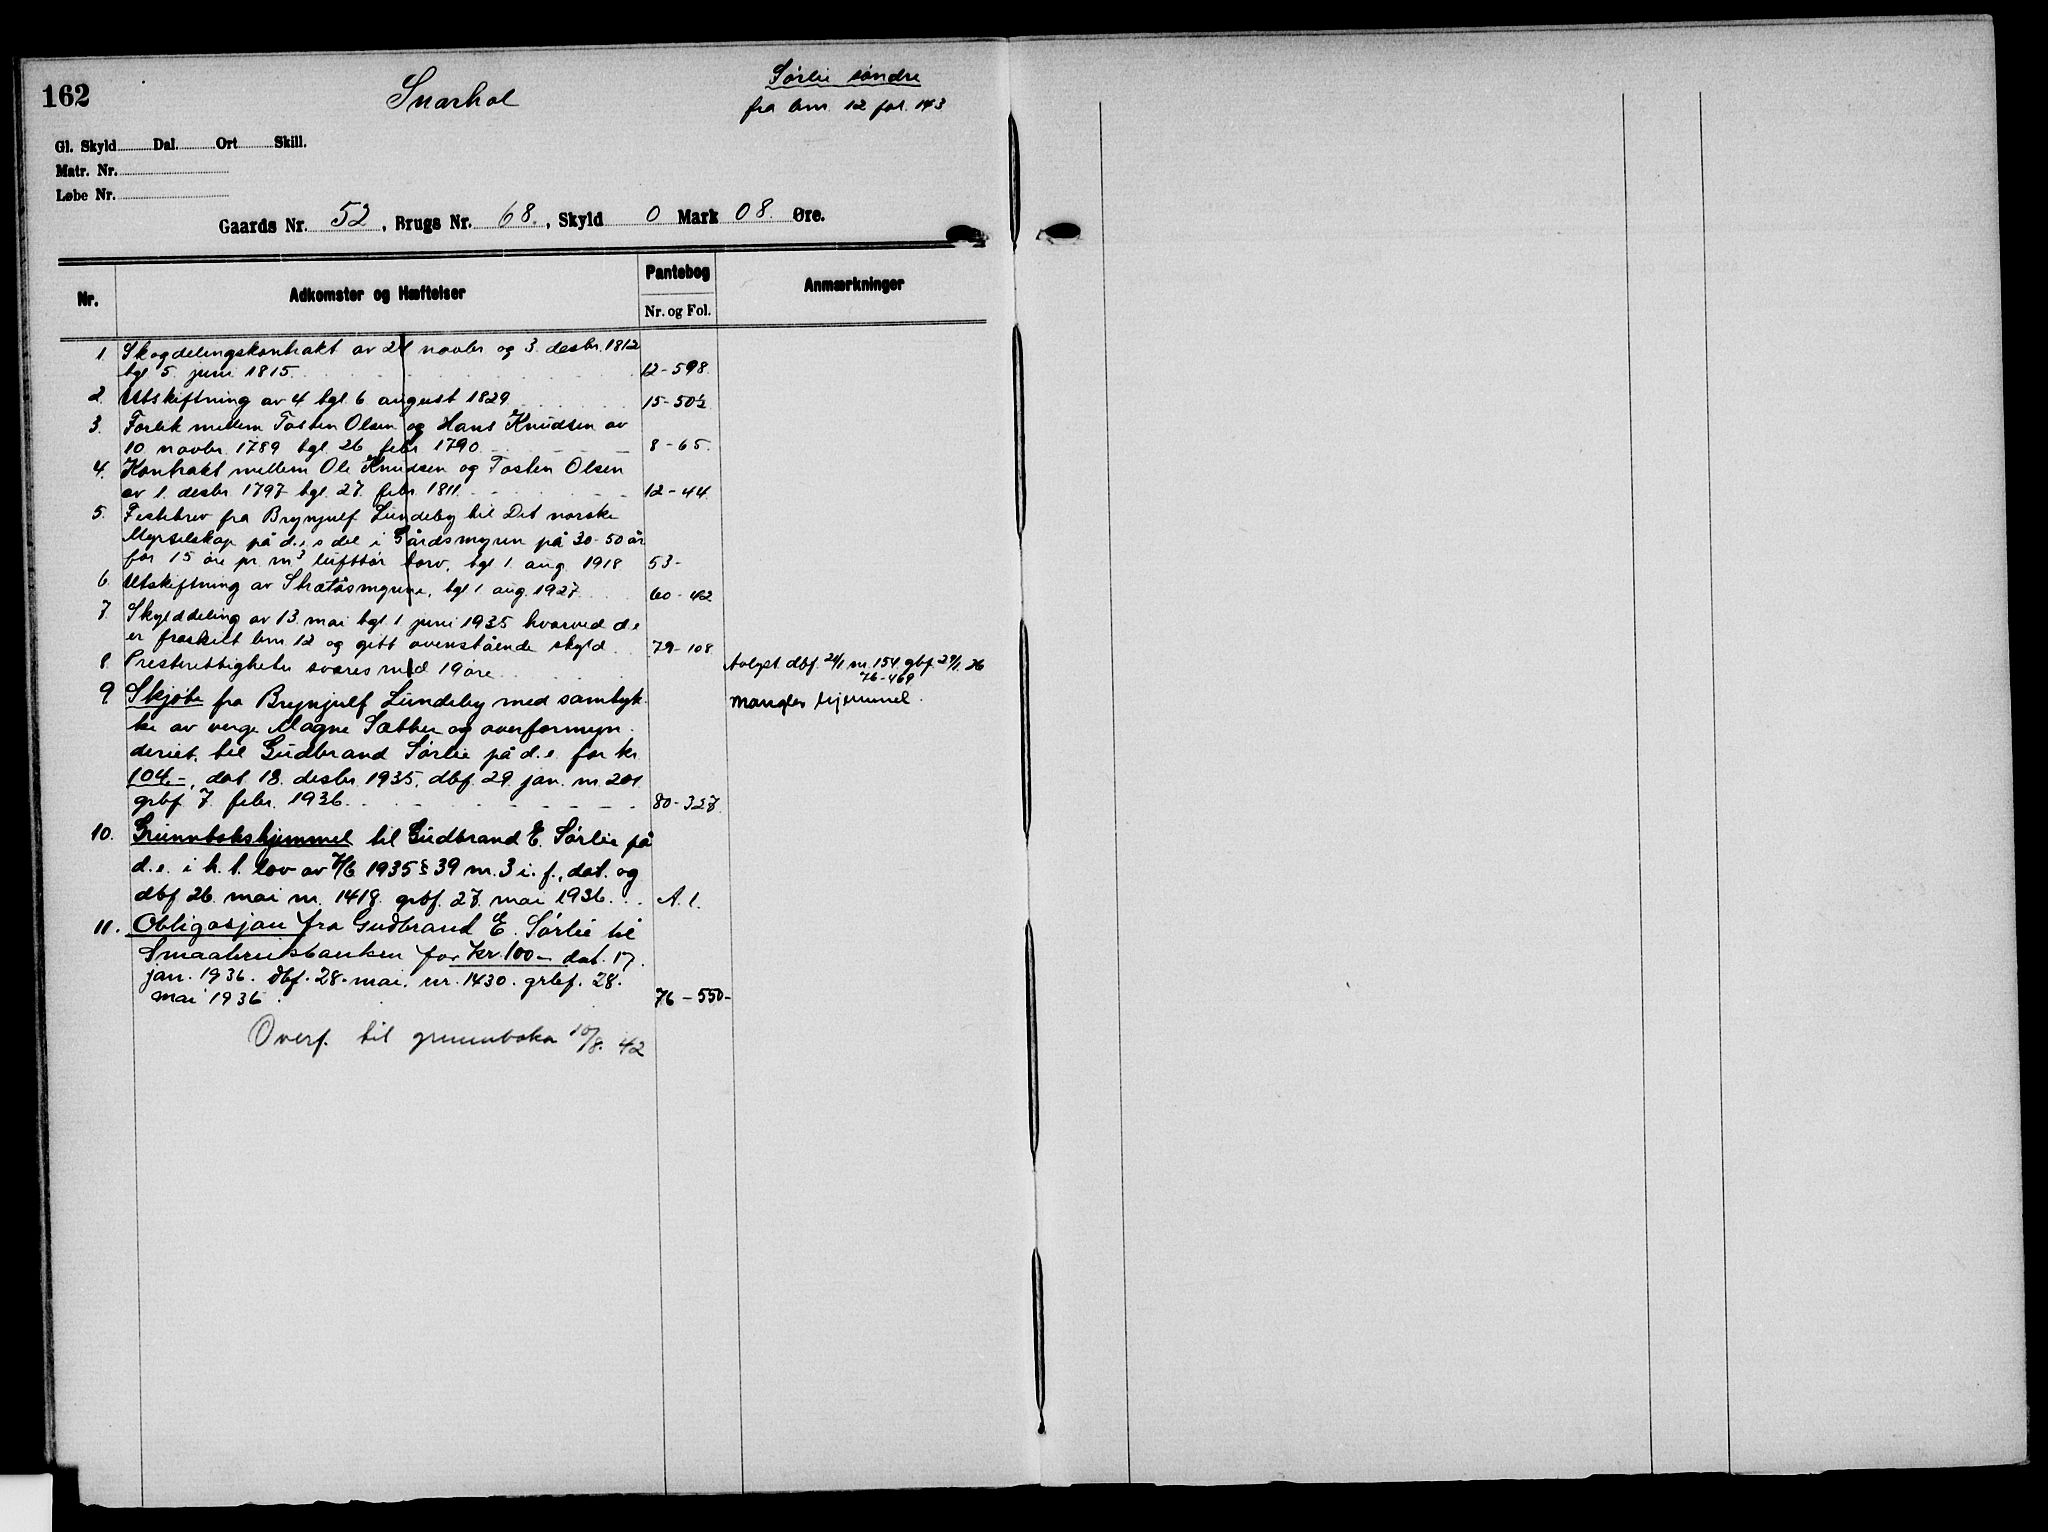 162
Snarhol
Sørlie søndre
fra brn. 12 fol. 143
Gl. Skyld Dal. Ort Skill.
Matr. Nr.
Løbe Nr.
Gaards Nr. 52, Brugs Nr. 68., Skyld 0 Mark 08. Øre.
Nr. Adkomster og Hæftelser Pantebog Anmærkninger
Nr. og Fol.
1. Skogdelingskontrakt av 21 novbr og 3. desbr. 1812
tgl 5. juni 1815. 12-598.
2. Utskiftning av 4 tgl. 6 august 1829 15-502
3. Forlik mellem Tosten Olsen og Hans Knudsen av
10 novbr. 1789 tgl. 26 febr 1790 8-65.
4. Kontrakt mellem Ole Knudsen og Tosten Olsen
av 1. desbr 1797 tgl. 27. febr. 1811. 12-44
5. Festebrev fra Brynjulf Lundeby til Det norske
Myrselskap på d.e.s del i Gårdsmyren på 30-50 år
for 15 øre pr. m³ lufttør torv, tgl 1 aug. 1918 53-
6. Utskiftning av Skatåsmyrene, tgl 1 aug. 1927 60-42
7. Skylddeling av 13. mai tgl. 1 juni 1935 hvorved d.e
er fraskilt brn 12 og gitt ovenstående skyld 79-108
8. Presterettigheter svares med 19 øre Avlyst dbf. 24/1 nr. 154 gbf. 29/1. 36
76-469
9. Skjøte fra Brynjulf Lundeby med samtyk- mangler hjemmel.
ke av verge Magne Sæther og overformyn-
deriet, til Gudbrand Sørlie på d.e. for kr
104.-, dat. 18. desbr 1935, dbf. 29. jan. nr 201
grbf 7. febr. 1936. 80-327
10. Grunnbokshjemmel til Gudbrand E. Sørlie på
d.e. i h. t. lov av 7/6 1935 § 39 nr. 3 i. f., dat. og
dbf 26. mai nr. 1418. grbf. 27. mai 1936. A. 1.
11. Obligasjon fra Gudbrand E. Sørlie til
Smaabruksbanken for kr. 100- dat. 17.
jan. 1936. dbf. 28. mai. nr. 1430. grbf. 28.
mai 1936. 76-550-
Overf. til grunnboka 10/8. 42